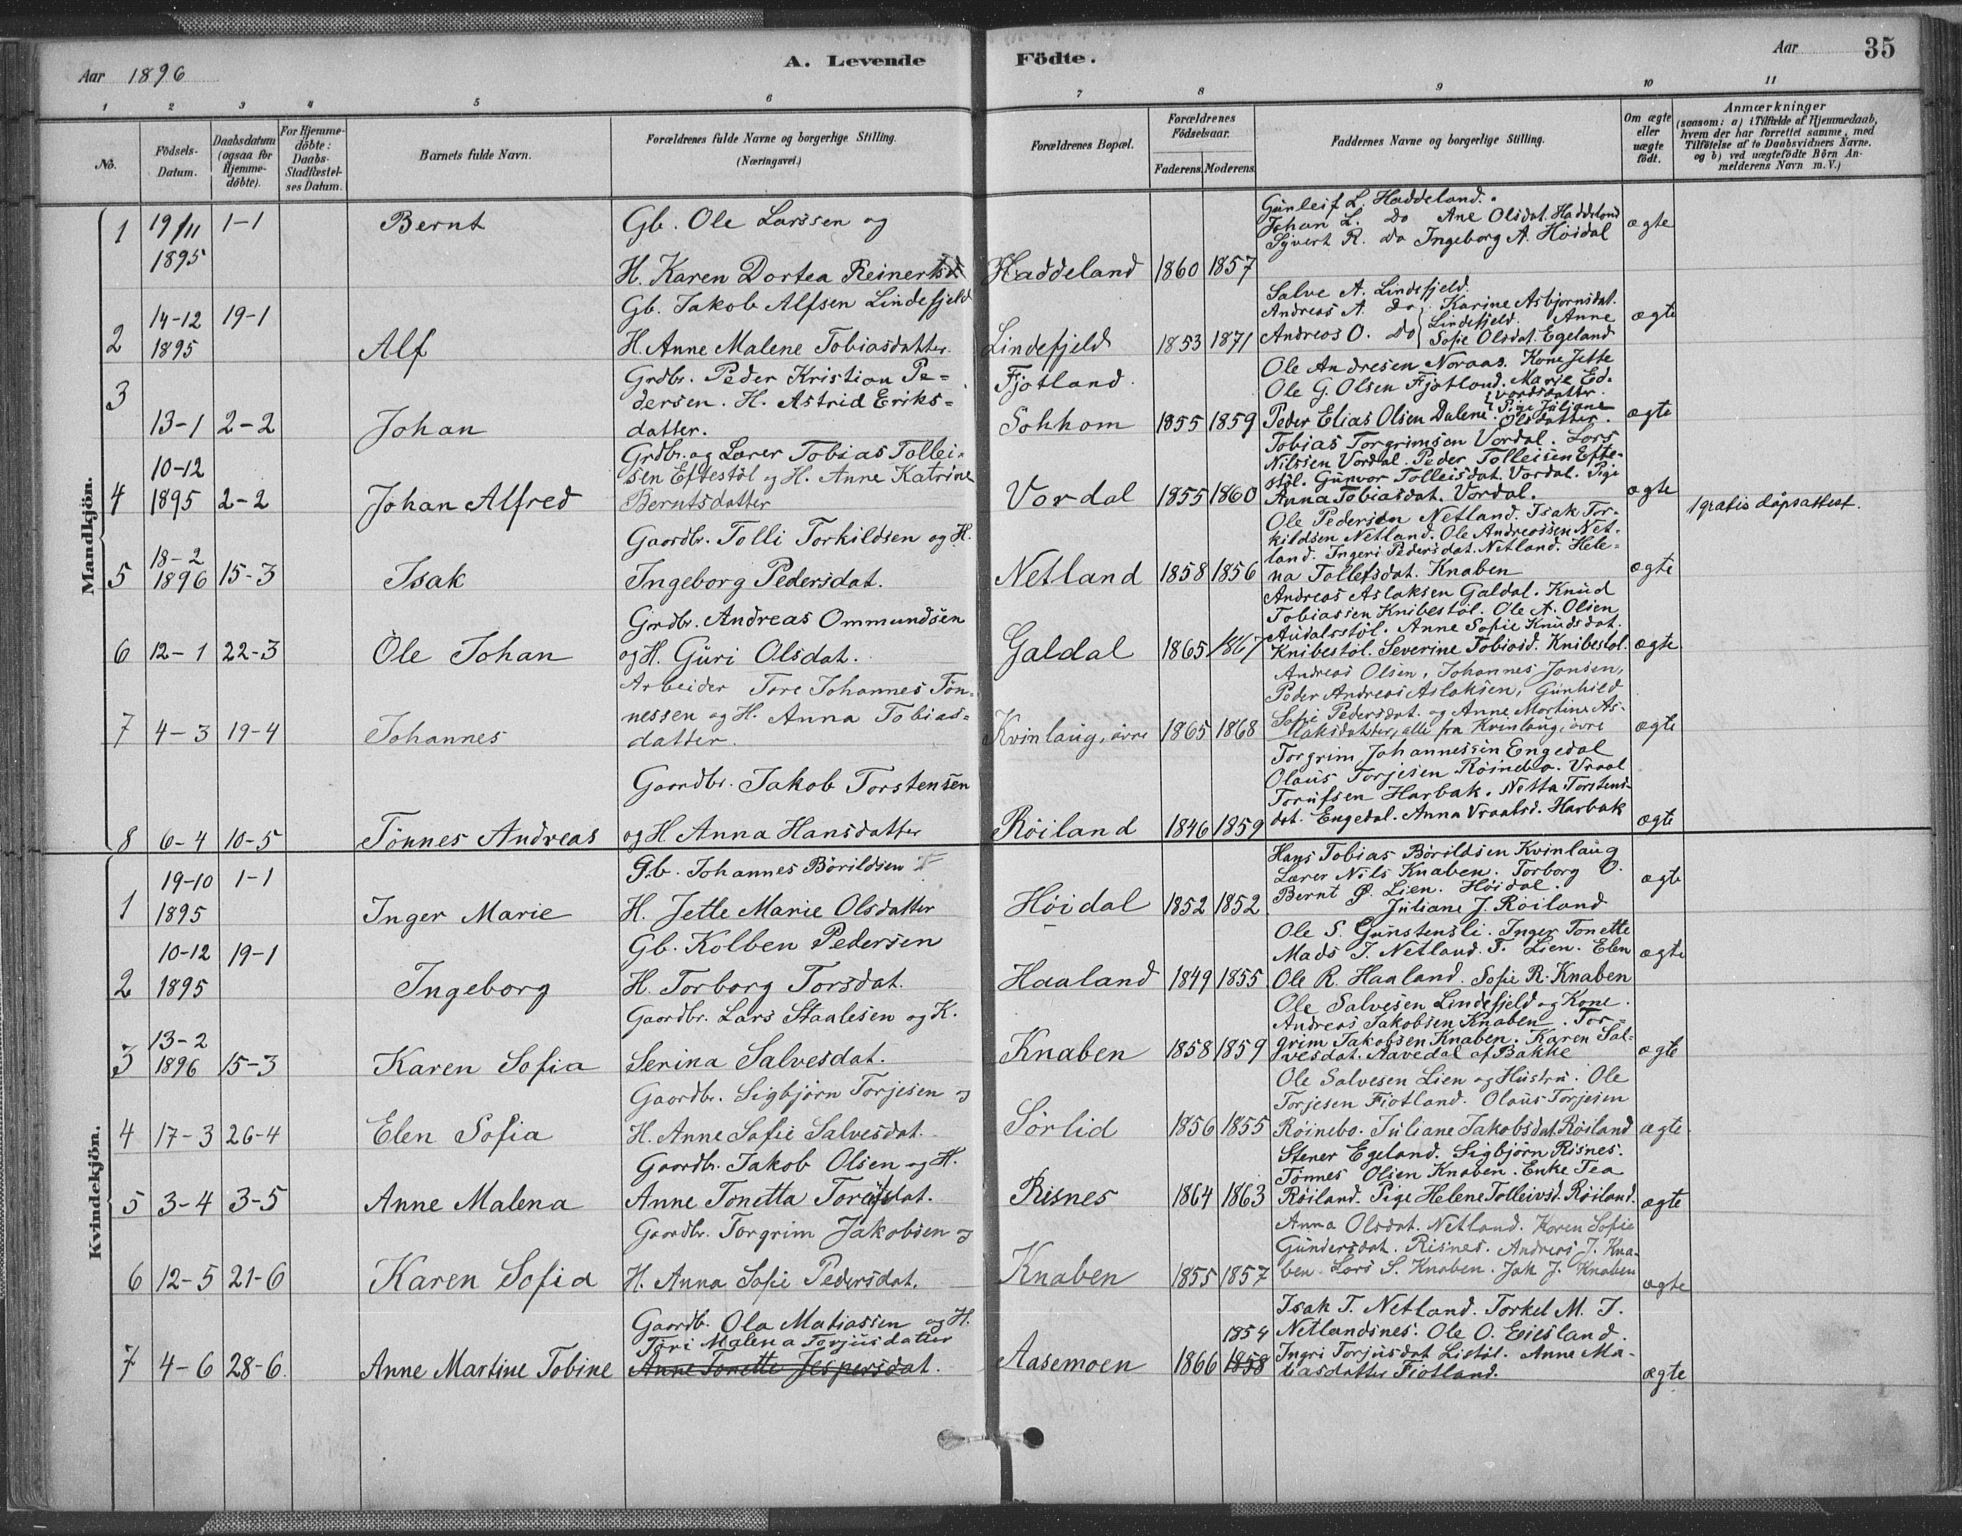 Aar 1896
A. Levende Födte.
Aar 35
1 2 3 4 5 6 7 8 9 10 11
No.
Födsels-Datum.
Daabsdatum (ogsaa for Hjemme-döbte).
For Hjemme-döbte: Daabs-Stadfæstel-ses Datum.
Barnets fulde Navn.
Forældrenes fulde Navne og borgerlige Stilling. (Næringsvei.)
Forældrenes Bopæl.
Forældrenes Födselsaar. Faderens. Moderens.
Faddernes Navne og borgerlige Stilling.
Om ægte eller uægte födt.
Anmærkninger (saasom: a) i Tilfælde af Hjemmedaab, hvem der har forrettet samme, med Tilföielse af to Daabsvidners Navne. og b) ved uægtefödte Börn An-melderens Navn m.V.)
Mandkjön.
1 19/11 1895 1-1 Bernt
Gb. Ole Larssen og
H. Karen Dortea Reinertsd
Haddeland 1860 1857
Gunleif L. Haddeland.
Johan L. Do Ane Olsdat. Haddeland
Syvert R. Do Ingeborg A. Höidal
ægte
2 14-12 1895 19-1 Alf
Gb. Jakob Alfsen Lindefjeld
H. Anne Malene Tobiasdatter
Lindefjeld 1853 1871
Salve A. Lindefjeld.
Andreas A. Do, Karine Asbjörnsdat.
Andreas O. Do Lindefjeld. Anne
Sofie Olsdat. Egeland
ægte
3 13-1 2-2 Johan
Grdbr. Peder Kristian Pe-
dersen. H. Astrid Eriks-
datter.
Fjotland.
Sohhom 1855 1859
Ole Andresen Noraas. Kone Jette
Ole G. Olsen Fjotland. Marie Ed-
vardsdatter.
Peder Elias Olsen Dalene. Pige Juliane
Olsdatter.
ægte
4 10-12 1895 2-2 Johan Alfred
Grdbr. og Lærer Tobias Tollei-
sen Eftestöl og H. Anne Katrine
Berntsdatter
Vordal 1855 1860
Tobias Torgrimsen Vordal. Lars
Nilssen Vordal. Peder Tolleisen Efte-
stöl. Gunvor Tolleisdat. Vordal. Pige
Anna Tobiasdat. Vordal.
ægte
1 gratis dåpsattest.
5 18-2 1896 15-3 Isak
Gaardbr. Tolli Torkildsen og H.
Ingeborg Pedersdat.
Netland 1858 1856
Ole Pedersen Netland. Isak Tor-
kildsen Netland. Ole Andreassen Net-
land. Ingeri Pedersdat. Netland. Hele-
na Tollefsdat. Knaben
ægte
6 12-1 22-3 Ole Johan
Grdbr. Andreas Ommundsen
og H. Guri Olsdat.
Galdal 1865 1867
Andreas Aslaksen Galdal. Knud
Tobiassen Knibestöl. Ole A. Olsen
Audalsstöl. Anne Sofie Knudsdat.
Knibestöl. Severine Tobiasd. Knibestöl.
ægte
7 4-3 19-4 Johannes
Arbeider Tore Johannes Tön-
nessen og H. Anna Tobias-
datter.
Kvinlaug, övre 1865 1868
Andreas Olsen, Johannes Jansen,
Peder Andreas Aslaksen, Gunhild
Sofie Pedersdat. og Anne Martine As-
laksdatter, alle fra Kvinlaug, övre
ægte
8 6-4 10-5 Tönnes Andreas
Gaardbr. Jakob Torstensen
og H Anna Hansdatter
Röiland 1846 1859
Torgrim Johannessen Engedal
Olaus Torjesen Röinebo. Vraal
Torufsen Harbak. Netta Torstens-
dat. Engedal. Anna Vraalsd. Harbak
ægte
Kvindekjön.
1 19-10 1895 1-1 Inger Marie
Gb. Johannes Börildsen
H. Jette Marie Olsdatter
Höidal 1852 1852
Hans Tobias Börildsen Kvinlaug
Lærer Nils Knaben. Torborg O.
Bernt Ø. Lien. Höidal.
Juliane J. Röiland
ægte
2 10-12 1895 19-1 Ingeborg
Gb. Kolben Pedersen
H. Torborg Torsdat.
Haaland 1849 1855
Ole S. Gunstensli. Inger Tonette
Mads T. Netland. T. Lien. Elen
Ole R. Haaland. Sofie R. Knaben
ægte
3 13-2 1896 15-3 Karen Sofia
Gaardbr. Lars Staalesen og K.
Serina Salvesdat.
Knaben 1858 1859
Ole Salvesen Lindefjeld og Kone.
Andreas Jakobsen Knaben. Tor-
grim Jakobsen Knaben. Karen Sal-
vesdat. Aavedal af Bakke
ægte
4 17-3 26-4 Elen Sofia
Gaardbr. Sigbjörn Torjesen og
H. Anne Sofie Salvesdat.
Sörlid 1856 1855
Ole Salvesen Lien og Hustru. Ole
Torjesen Fiotland. Olaus Torjesen
Röinebo. Juliane Jakobsdat. Röiland
ægte
5 3-4 3-5 Anne Malena
Gaardbr. Jakob Olsen og H.
Anne Tonetta Torufsdat.
Risnes 1864 1863
Stener Egeland. Sigbjörn Risnes.
Tönnes Olsen Knaben. Enke Tea
Röiland. Pige Helene Tolleivsd. Röiland.
ægte
6 12-5 21-6 Karen Sofia
Gaardbr. Torgrim Jakobsen og
H. Anna Sofie Pedersdat.
Knaben 1855 1857
Anna Olsdat. Netland. Karen Sofie
Gundersdat. Risnes. Andreas J. Kna-
ben. Lars S. Knaben. Jak J. Knaben
ægte
7 4-6 28-6 Anne Martine Tobine
Gaardb. Ola Matiassen og H.
Tori Malena Torjusdatter
Anne Tonette Jespersdat.
Aasemoen 1866 1854 1858
Isak T. Netland. Torkel M. T.
Netlandsnes. Ole O. Eiesland.
Ingri Torjusdat Listöl. Anne Ma-
tiasdatter Fiotland.
ægte